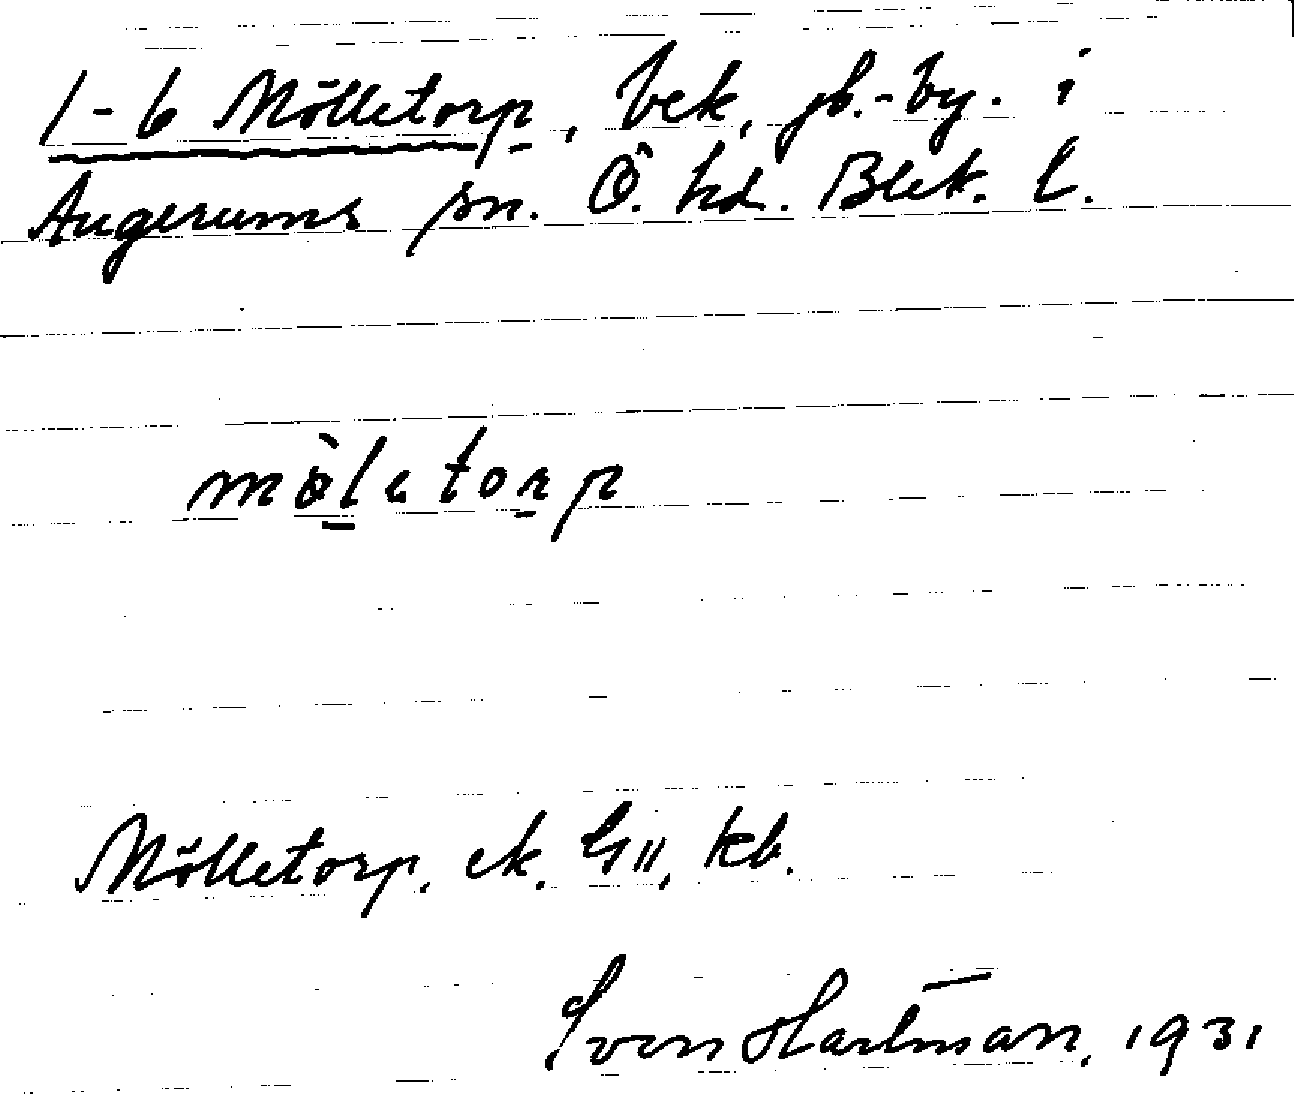 1-6 Mölletorp, bek, jb.-by. i
Augerums sn. Ö. hd. Blek. l.
mòletorp
Mölletorp, ek. GII, kb.
Sven Hartman, 1931